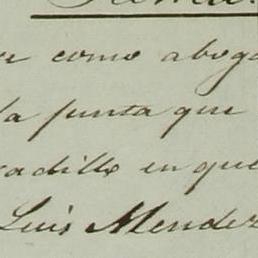 como aboga
la punta que
adillo en que
Luis Mendez